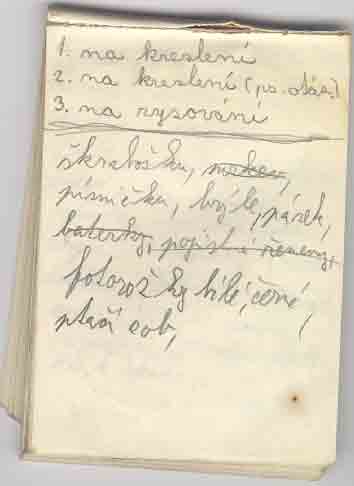 1. na kreslení
2. na kreslení (ps. otáz.)
3. na rysování
škrabošku,
písničku, brýle, párek,
baterky, pojist
fotorožky bílé, černé,
ptačí zob,